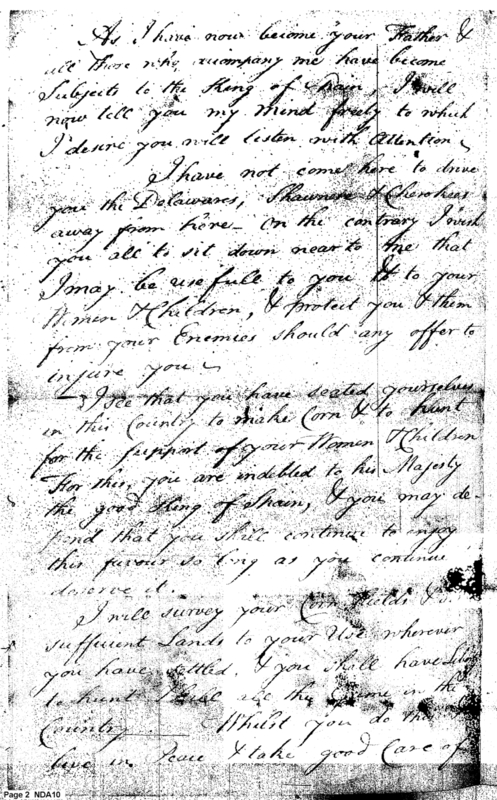 As I have now become your Father &
all those who accompany me have become
Subjects to the King of Spain, I will
now tell you my mind freely to which
I desire you will listen with Attention
I have not come here to drive
you the Delawares, Shawnese & Cherokees
away from here – On the contrary I wish
you all to sit down near to me that
I may be usefull to you & to your
Women & Children, & protect you & them
from your Enemies should any offer to
injure you
I see that you have seated yourselves
in this Country to make Corn & to hunt
for the support of your Women & Children
For this, you are indebted to his Majesty
the good King of Spain, & you may de-
pend that you shall continue to enjoy
this favour so long as you continue
deserve it.
I will survey your Corn Fields &
sufficient Lands to your Use wherever
you have settled, & you shall have
to hunt & kill all the Game in the
Country. Whilst you do
live in Peace & take good Care of
Page 2 NDA10